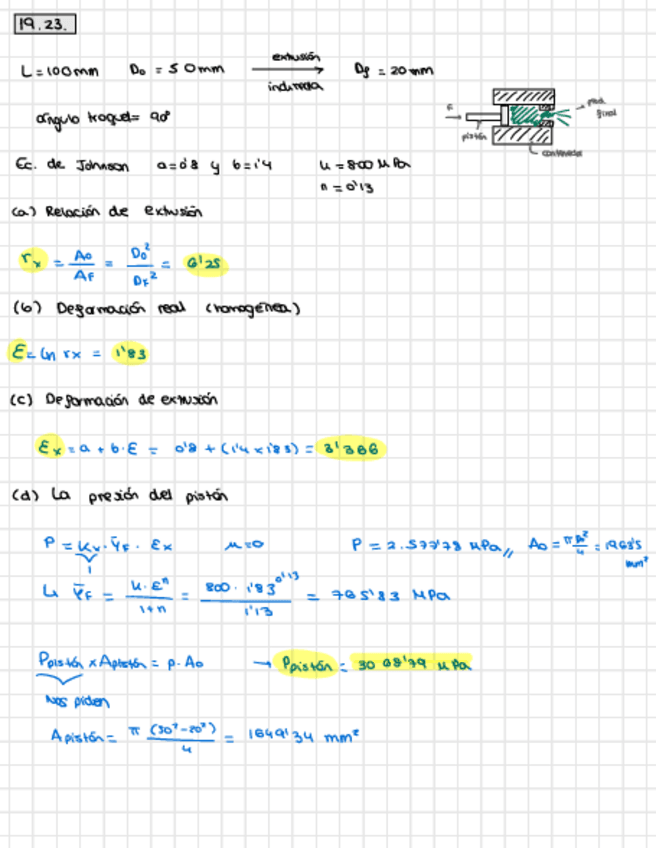 19.23.
L = 100mm D₀ = 50mm extrusión → indirecta Df = 20mm
ángulo troquel = 90º
F
pistón
final
contenedor
Ec. de Johnson a=0'8 y b=1'4 K = 800 MPa
n = 0'13
(a) Relación de extrusión
rx = A₀/AF = D₀²/DF² = 6'25
(b) Deformación real (homogénea)
ε = ln rx = 1'83
(c) Deformación de extrusión
εx = a + b·ε = 0'8 + (1'4 × 1'83) = 3'366
(d) La presión del pistón
P = Kx · ȲF · εx μ=0 P = 2.577'78 MPa,, A₀ = = 1963'5 mm²
1
↳ ȲF = K·εⁿ/1+n = 800 · 1'83^0'13/1'13 = 765'83 MPa
Ppistón × Apistón = p·A₀ → Ppistón = 3068'79 MPa
Nos piden
Apistón = π (50²-20²)/4 = 1649'34 mm²